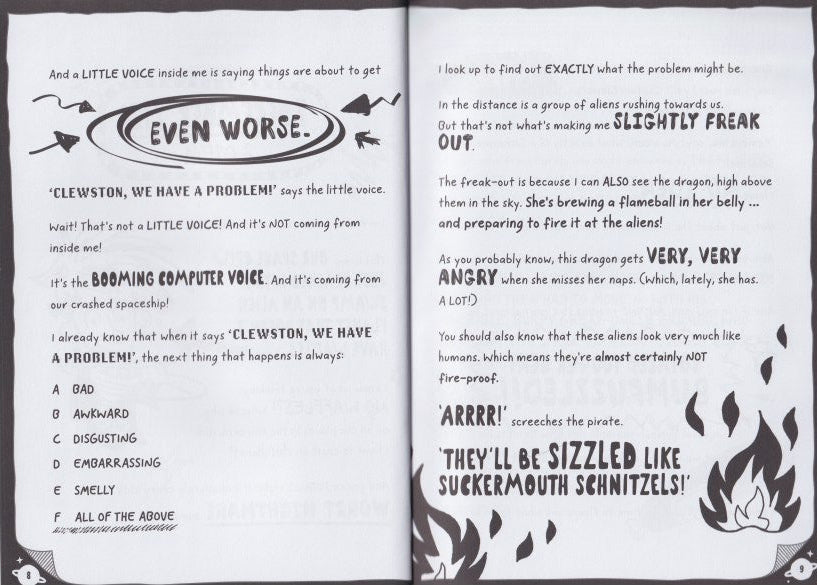 And a LITTLE VOICE inside me is saying things are about to get
EVEN WORSE.
'CLEWSTON, WE HAVE A PROBLEM!' says the little voice.
Wait! That's not a LITTLE VOICE! And it's NOT coming from
inside me!
It's the BOOMING COMPUTER VOICE. And it's coming from
our crashed spaceship!
I already know that when it says 'CLEWSTON, WE HAVE
A PROBLEM!', the next thing that happens is always:
A BAD
B AWKWARD
C DISGUSTING
D EMBARRASSING
E SMELLY
F ALL OF THE ABOVE
8
I look up to find out EXACTLY what the problem might be.
In the distance is a group of aliens rushing towards us.
But that's not what's making me SLIGHTLY FREAK
OUT.
The freak-out is because I can ALSO see the dragon, high above
them in the sky. She's brewing a flameball in her belly ...
and preparing to fire it at the aliens!
As you probably know, this dragon gets VERY, VERY
ANGRY when she misses her naps. (Which, lately, she has.
A LOT!)
You should also know that these aliens look very much like
humans. Which means they're almost certainly NOT
fire-proof.
'ARRRR!' screeches the pirate.
'THEY'LL BE SIZZLED LIKE
SUCKERMOUTH SCHNITZELS!'
9